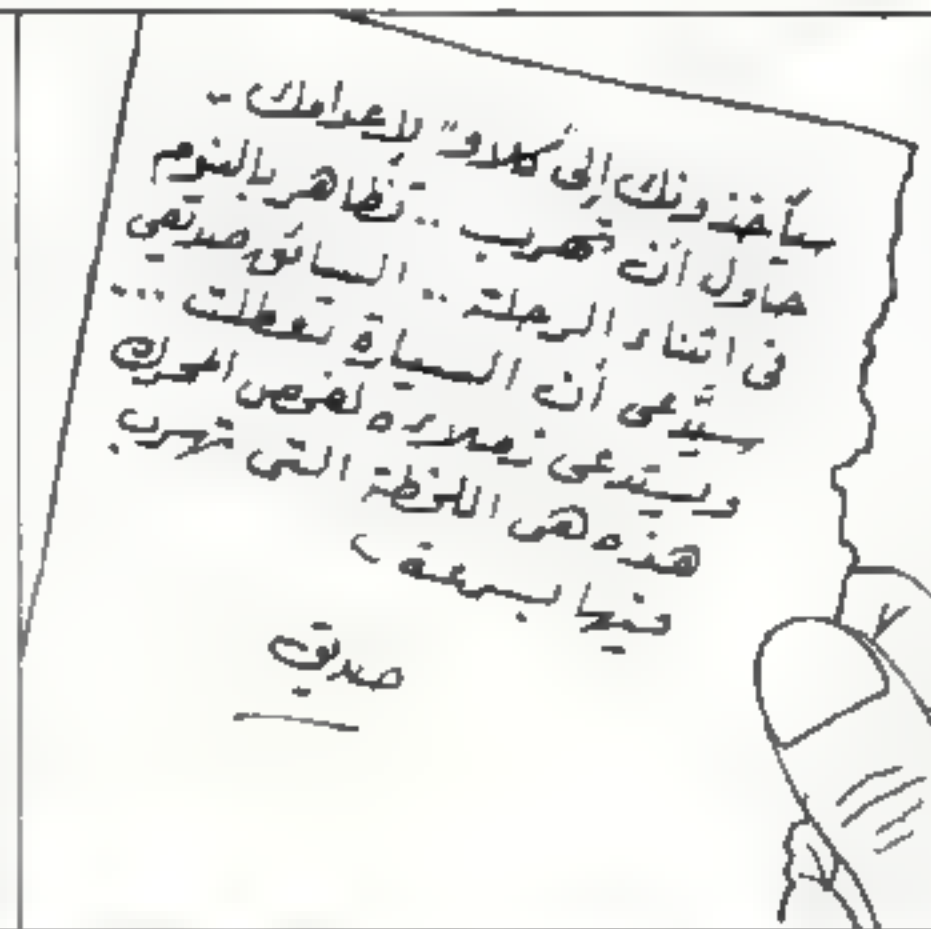 سيأخذونك إلى "كلاو" لإعدامك ..
حاول أن تهرب .. تظاهر بالنوم
فى اثناء الرحلة .. السائق صديقى
سيدَّعى أن السيارة تعطلت ...
ويستدعى زملاءه لفحص المحرك
هذه هى اللحظة التى تهرب
فيها بسرعة ،
صديق